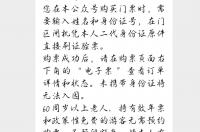 您在本公众号购买门票时，需
要输入姓名和身份证号，在门
区闸机凭本人二代身份证原件
直接刷证验票。
购票成功后，请在购票页面右
下角的“电子票”查看订单
详情和状态。未携带身份证将
无法入园。
60周岁以上老人，持有效年票
和政策性免费的游客无需预约